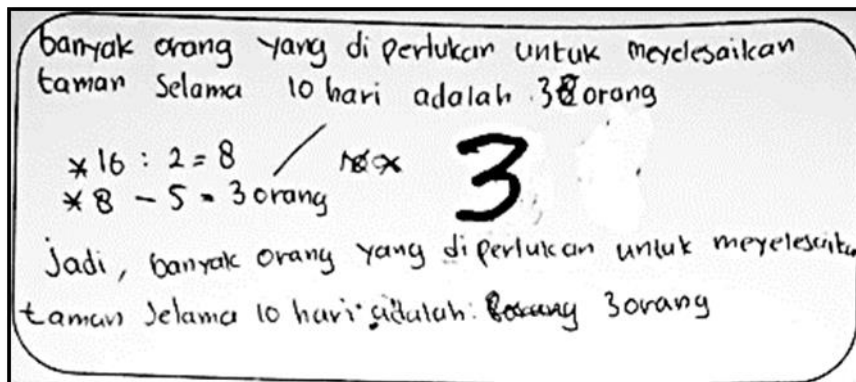 banyak orang yang diperlukan untuk meyelesaikan
taman Selama 10 hari adalah 3 orang
* 16 : 2 = 8
3
* 8 - 5 = 3 orang
jadi, banyak orang yang diperlukan untuk
taman Selama 10 hari adalah: 3 orang